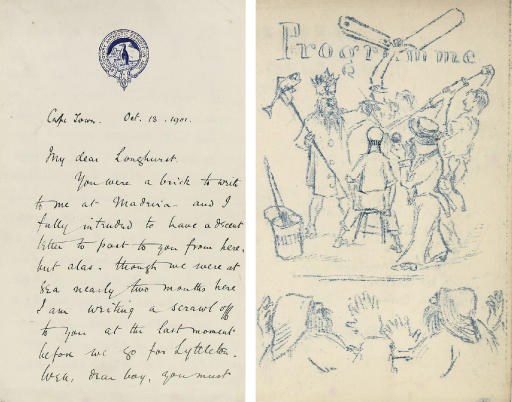 Cape Town. Oct. 13. 1901.
My dear Longhurst.
You were a brick to write
to me at Madeira and I
fully intended to have a decent
letter to post to you from here,
but alas. though we were at
sea nearly two months here
I am writing a scrawl off
to you at the last moment
before we go for Lyttleton.
Well, dear boy, you must
Programme